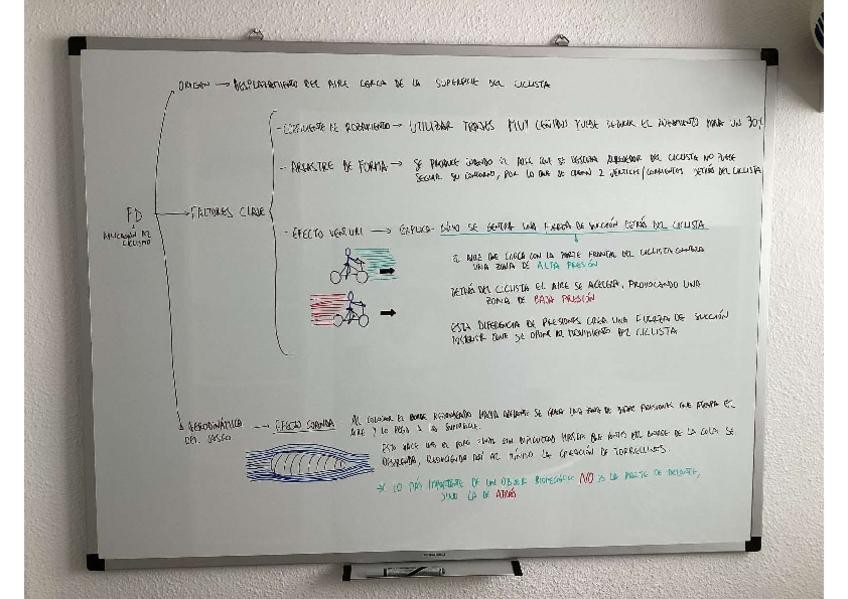 ORIGEN → DESPLAZAMIENTO DEL AIRE CERCA DE LA SUPERFICIE DEL CICLISTA
FD
APLICACIÓN AL
CICLISMO
FACTORES CLAVE
- COEFICIENTE DE ROZAMIENTO → UTILIZAR TRAJES MUY CEÑIDOS PUEDE REDUCIR EL ROZAMIENTO HASTA UN 30%
- ARRASTRE DE FORMA → SE PRODUCE CUANDO EL AIRE QUE SE DESPLAZA ALREDEDOR DEL CICLISTA NO PUEDE
SEGUIR SU CONTORNO, POR LO QUE SE CREAN 2 VÓRTICES/CORRIENTES DETRÁS DEL CICLISTA
- EFECTO VENTURI → EXPLICA CÓMO SE GENERA UNA FUERZA DE SUCCIÓN DETRÁS DEL CICLISTA
EL AIRE QUE CHOCA CON LA PARTE FRONTAL DEL CICLISTA GENERA
UNA ZONA DE ALTA PRESIÓN
DETRÁS DEL CICLISTA EL AIRE SE ACELERA, PROVOCANDO UNA
ZONA DE BAJA PRESIÓN
ESTA DIFERENCIA DE PRESIONES CREA UNA FUERZA DE SUCCIÓN
QUE SE OPONE AL MOVIMIENTO DEL CICLISTA
AERODINÁMICA
DEL CASCO
→ EFECTO COANDA
AL COLOCAR EL BORDE REDONDEADO HACIA ADELANTE SE CREA UNA ZONA DE BAJAS PRESIONES QUE ATRAPA EL
AIRE Y LO PEGA A LA SUPERFICIE.
ESTO HACE QUE EL AIRE SIGA HASTA QUE ANTES DEL BORDE DE LA COLA SE
DESPRENDA, REDUCIENDO ASÍ AL MÍNIMO LA CREACIÓN DE TORBELLINOS.
→ LO MÁS IMPORTANTE DE UN OBJETO NO ES LA PARTE DE DELANTE,
SINO LA DE ATRÁS